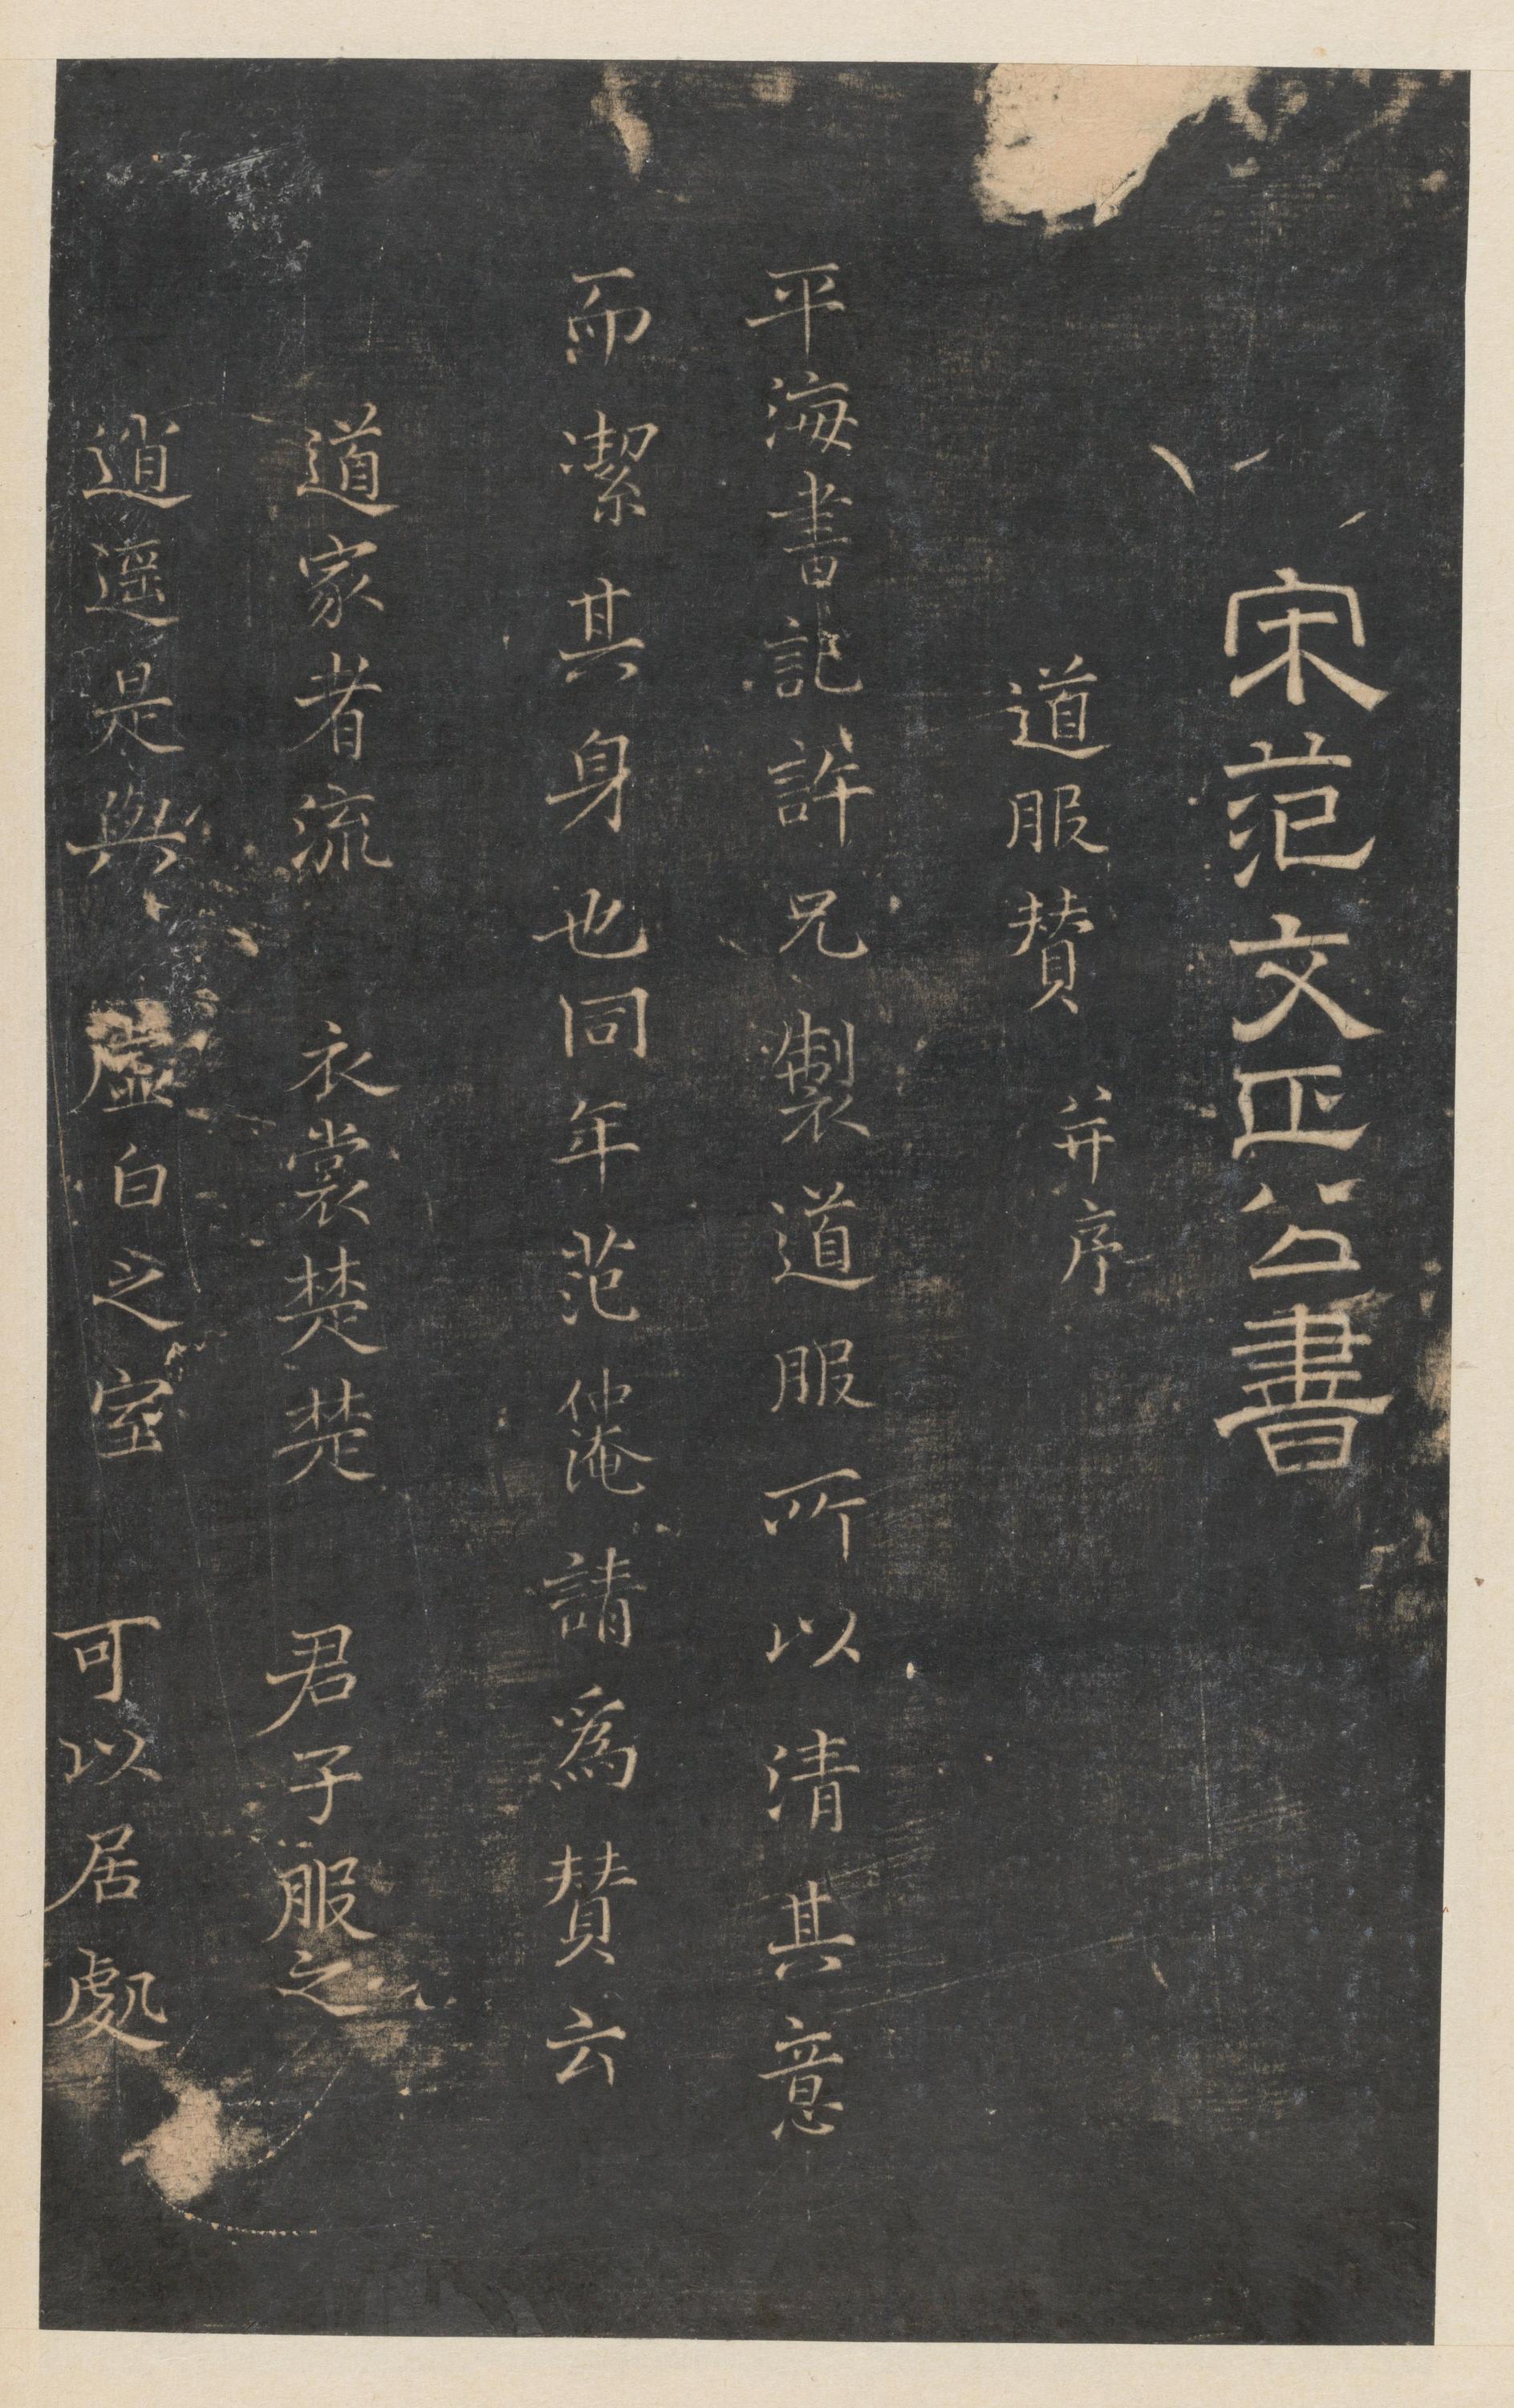 宋范文正公書
道服賛 并序
平海書記許兄製道服所以清其意
而潔其身也同年范仲淹請爲賛云
道家者流 衣裳楚楚 君子服之
逍遥是與 虛白之室 可以居處